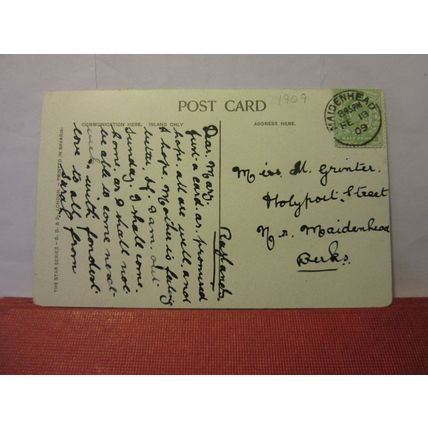 1909
POST CARD
COMMUNICATION HERE. INLAND ONLY.
ADDRESS HERE.
MAIDENHEAD
8.45PM
FE 18
09
Dear May,
Just a card as promised
hope all are well, and
I hope Mother is feeling
better. If I am out
Sunday I shall come
home as I shall not
be able to come next
week. with fondest
love to all from
Miss M. Grinter.
Holyport Street
Nr. Maidenhead
Berks.
THE STAR SERIES